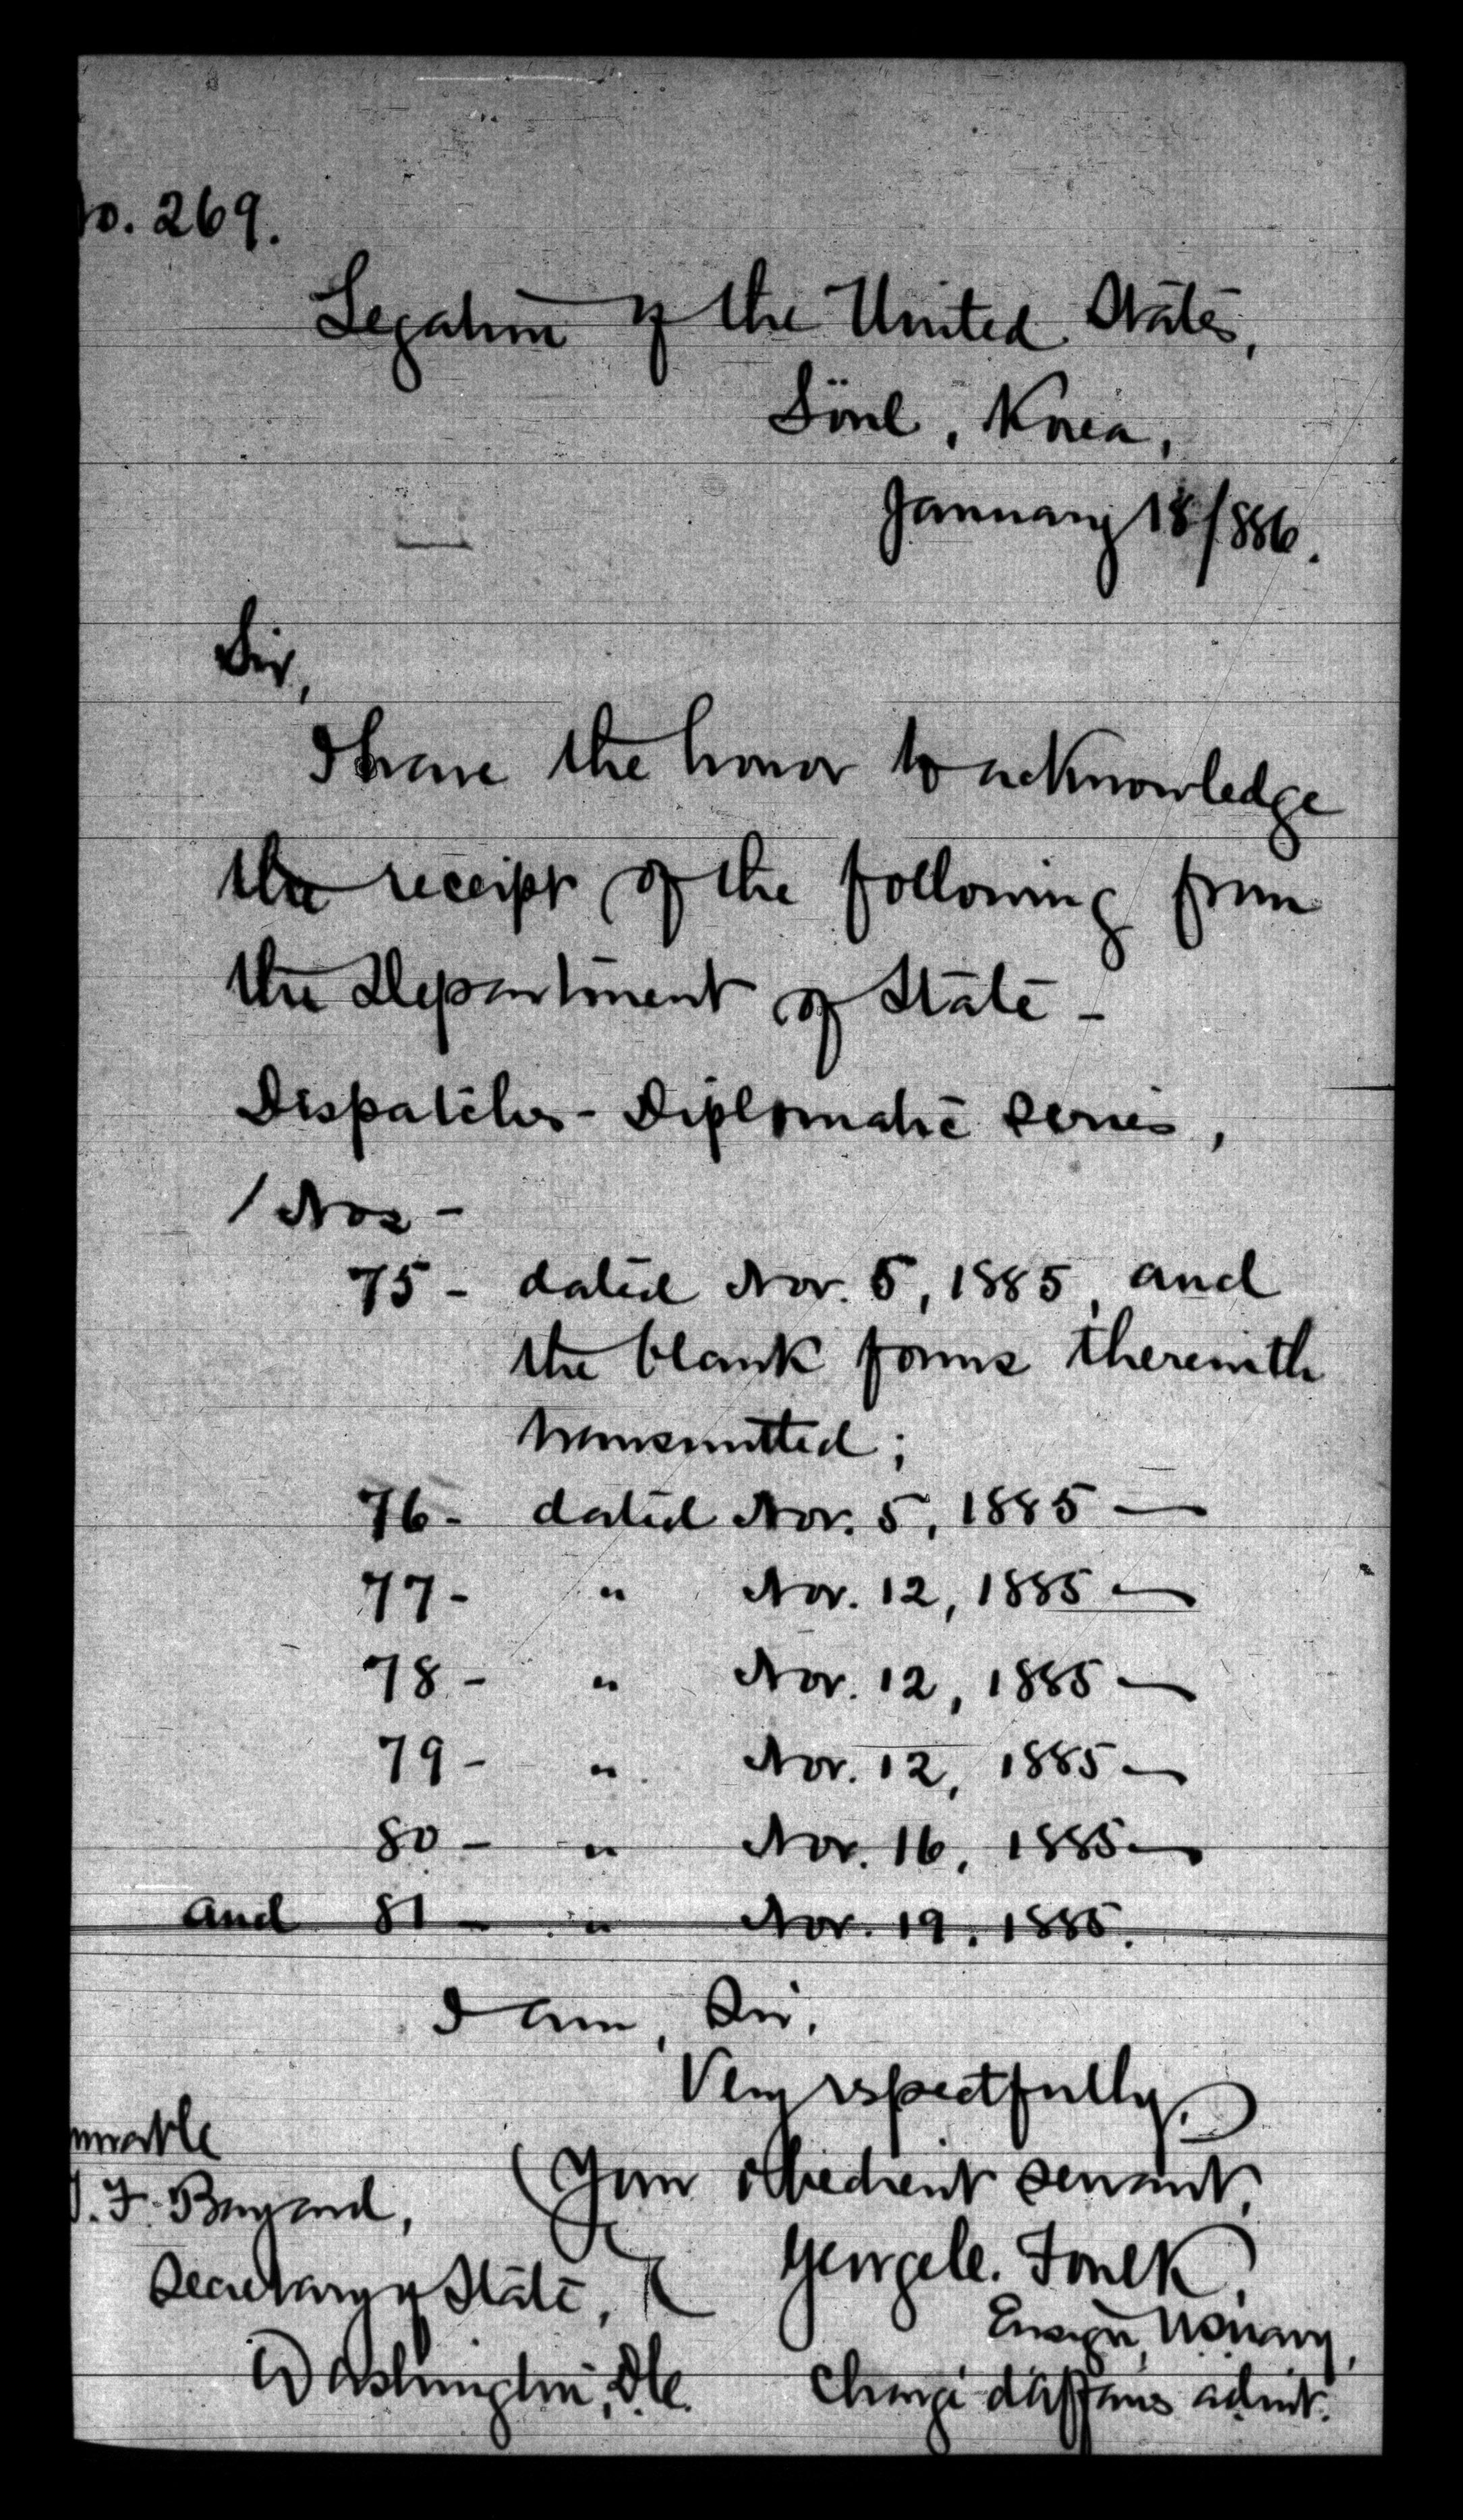 o. 269.
Legation of the United States,
Söul, Korea,
January 18/886.
Sir,
I have the honor to acknowledge
the receipt of the following from
the Department of State -
Dispatches - Diplomatic Series,
/ Nos -
75 - dated Nov. 5, 1885, and
the blank forms therewith
transmitted;
76 - dated Nov. 5, 1885 —
77 - " Nov. 12, 1885 —
78 - " Nov. 12, 1885 —
79 - " Nov. 12, 1885 —
80 - " Nov. 16, 1885 —
and 81 - " Nov. 19, 1885.
I am, Sir,
Very respectfully,
Your obedient servant,
George C. Foulk,
Ensign, U.S. Navy,
Chargé d'affaires ad int.
norable
T. F. Bayard,
Secretary of State,
Washington, D.C.